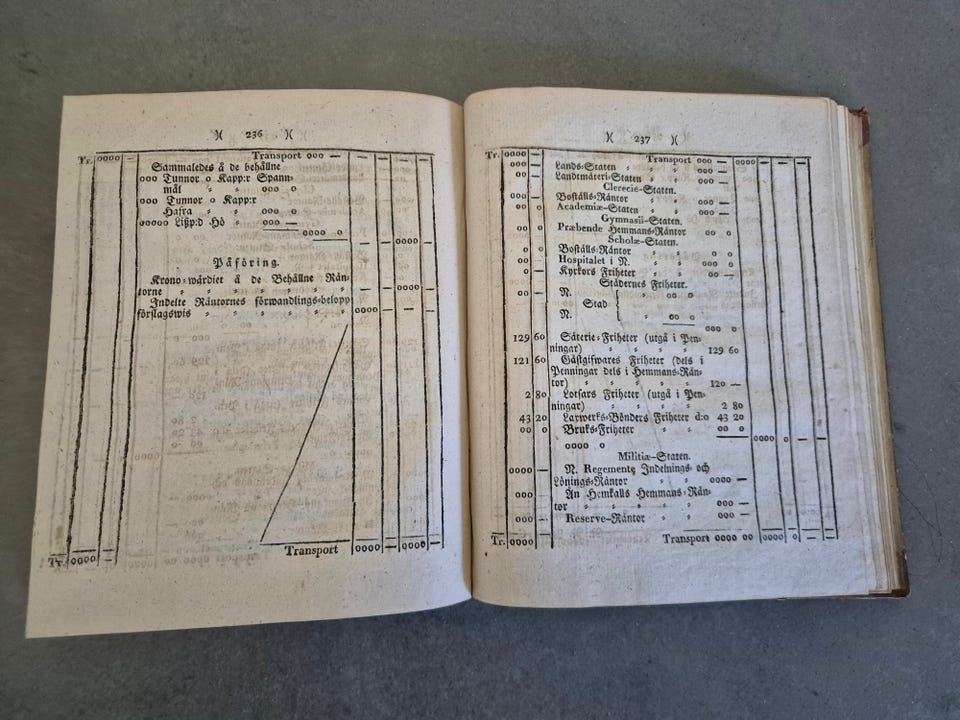 )( 236 )(
Tr. 0000 — Transport 000 —
Sammaledes å de behållne
000 Tunnor 0 Kapp:r Spann-
mål 000 0
000 Tunnor 0 Kapp:r
Hafra 000 0
00000 Lißp:d Hö 000 —
0000 0
— — 0000 —
Påföring.
Krono-wärdiet å de Behållne Rän-
torne — — 0000 —
Indelte Räntornes förwandlings-belopp
förslagswis 0000 — — —
Tr. 0000 — Transport 0000 — 0000 —
)( 237 )(
Tr. 0000 — Transport 000 — 0000 — — —
000 — Lands-Staten 000 —
00 — Landtmäteri-Staten 000 —
Clerecie-Staten.
000 — Boställs-Räntor 000 —
00 0 Academiæ-Staten 000 —
Gymnasii-Staten.
00 0 Præbende Hemmans-Räntor 00 0
Scholæ-Staten.
0 0 Boställs-Räntor 0 0
00 Hospitalet i N. 000 0
0 — Kyrkors Friheter 00 —
Städernes Friheter.
00 — N. 00 0
Stad {
N. 00 0
000 0
129 60 Säterie-Friheter (utgå i Pen-
ningar) 129 60
121 60 Gästgifwares Friheter (dels i
Penningar dels i Hemmans-Rän-
tor) 120 —
2 80 Lotsars Friheter (utgå i Pen-
ningar) 2 80
43 20 Laxwerks-Bönders Friheter d:o 43 20
00 0 Bruks-Friheter 00 0
0000 0 — —
0000 0
Militiæ-Staten.
0000 — N. Regements Indelnings- och
Lönings-Räntor 0000 —
000 An Hemkalls Hemmans-Rän-
tor 000 —
000 — Reserve-Räntor 000 —
Tr. 0000 Transport 0000 00 0000 0 — —